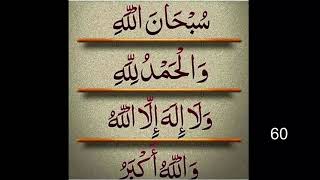 سُبْحَانَ اللَّهِ
وَالْحَمْدُ لِلَّهِ
وَلَا إِلَهَ إِلَّا اللَّهُ
وَاللَّهُ أَكْبَرُ
60